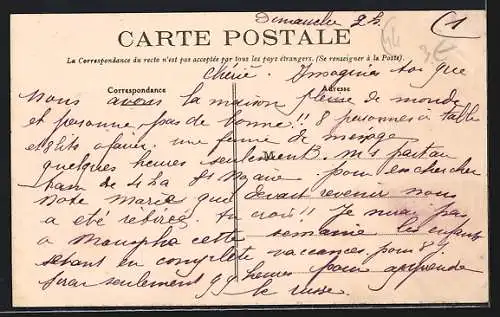 Dimanche 2h.
1
CARTE POSTALE
La Correspondance du recto n'est pas acceptée par tous les pays étrangers. (Se renseigner à la Poste).
Chérie. Imagines toi que
Correspondance
Adresse
nous avons la maison pleine de monde
et personne, pas de bonne!! 8 personnes à table
et lits à faire. une femme de ménage
quelques heures seulement. part au
de 4h St Nazaire pour en chercher
Marie que devait revenir nous
a été tu crois!! Je n'irai pas
à cette semaine les enfants
étant en complète vacances pour 8 j.
seulement heures pour apprendre
le russe.